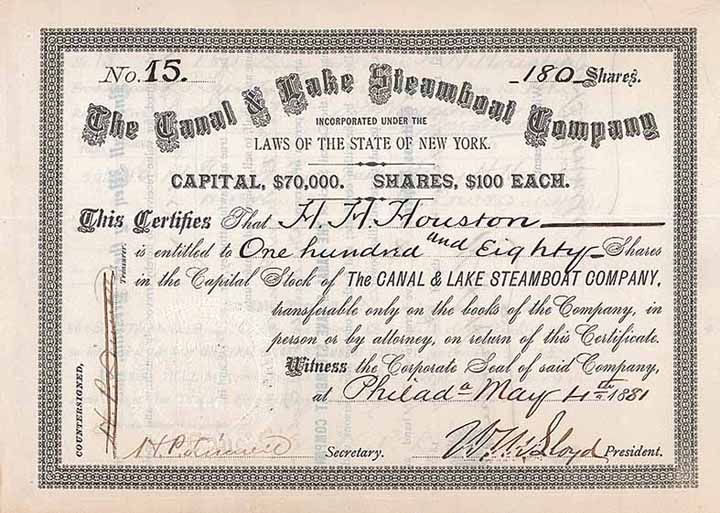 No. 15. 180 Shares.
The Canal & Lake Steamboat Company
INCORPORATED UNDER THE
LAWS OF THE STATE OF NEW YORK.
CAPITAL, $70,000. SHARES, $100 EACH.
This Certifies That H. H. Houston
is entitled to One hundred and Eighty Shares
in the Capital Stock of The CANAL & LAKE STEAMBOAT COMPANY,
transferable only on the books of the Company, in
person or by attorney, on return of this Certificate.
Witness the Corporate Seal of said Company,
at Philada May 4th 1881
COUNTERSIGNED,
Treasurer.
Secretary.
Lloyd President.